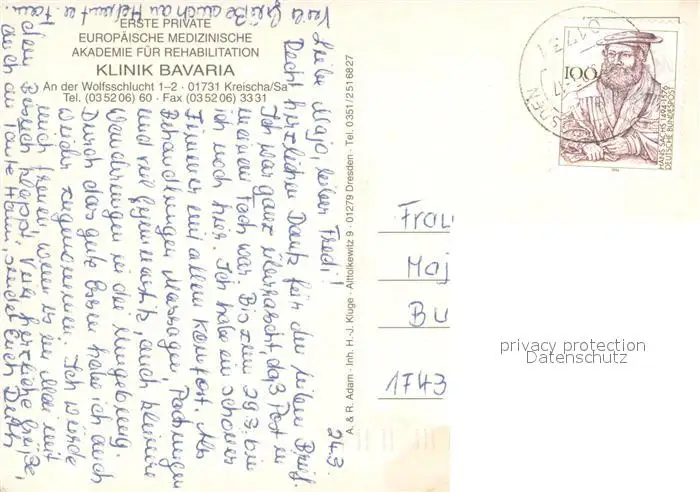 ERSTE PRIVATE
EUROPÄISCHE MEDIZINISCHE
AKADEMIE FÜR REHABILITATION
KLINIK BAVARIA
An der Wolfsschlucht 1–2 · 01731 Kreischa/Sa
Tel. (03 52 06) 60 · Fax (03 52 06) 33 31
24.3.
Liebe Maja, lieber Fredi!
Recht herzlichen Dank für den lieben Brief.
Ich war ganz überrascht, daß Post in
meinem Fach war. Bis zum 29.3. bin
ich noch hier. Ich habe ein schönes
Zimmer mit allem Komfort. Als
Behandlungen Massagen, Packungen
und viel Gymnastik, auch kleinere
Wanderungen in der Umgebung.
Durch das gute Essen habe ich auch
wieder zugenommen. Ich würde
mich freuen, wenn es im Mai mit
dem Besuch klappt. Viele herzliche Grüße,
auch an Tante Hanni, sendet Euch
Viele Grüße auch an Helmut u. Fam.
A. & R. Adam - Inh. H.-J. Kluge - Alttolkewitz 9 - 01279 Dresden - Tel. 0351/2516827
100
HANS SACHS 1494-1576
DEUTSCHE BUNDESPOST
Frau
Maj
Bu
1743
privacy protection
Datenschutz